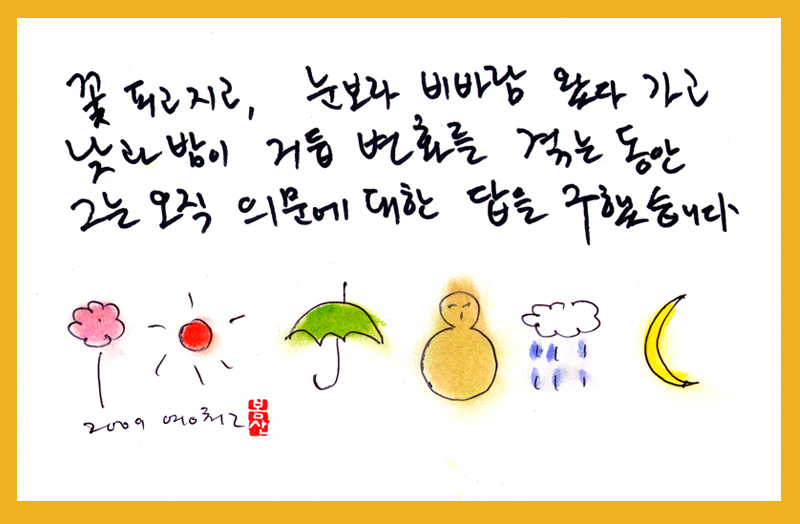 꽃 피고지고, 눈보라 비바람 왔다 가고
낮과 밤이 거듭 변화를 겪는 동안
그는 오직 의문에 대한 답을 구했습니다.
2009
봄산